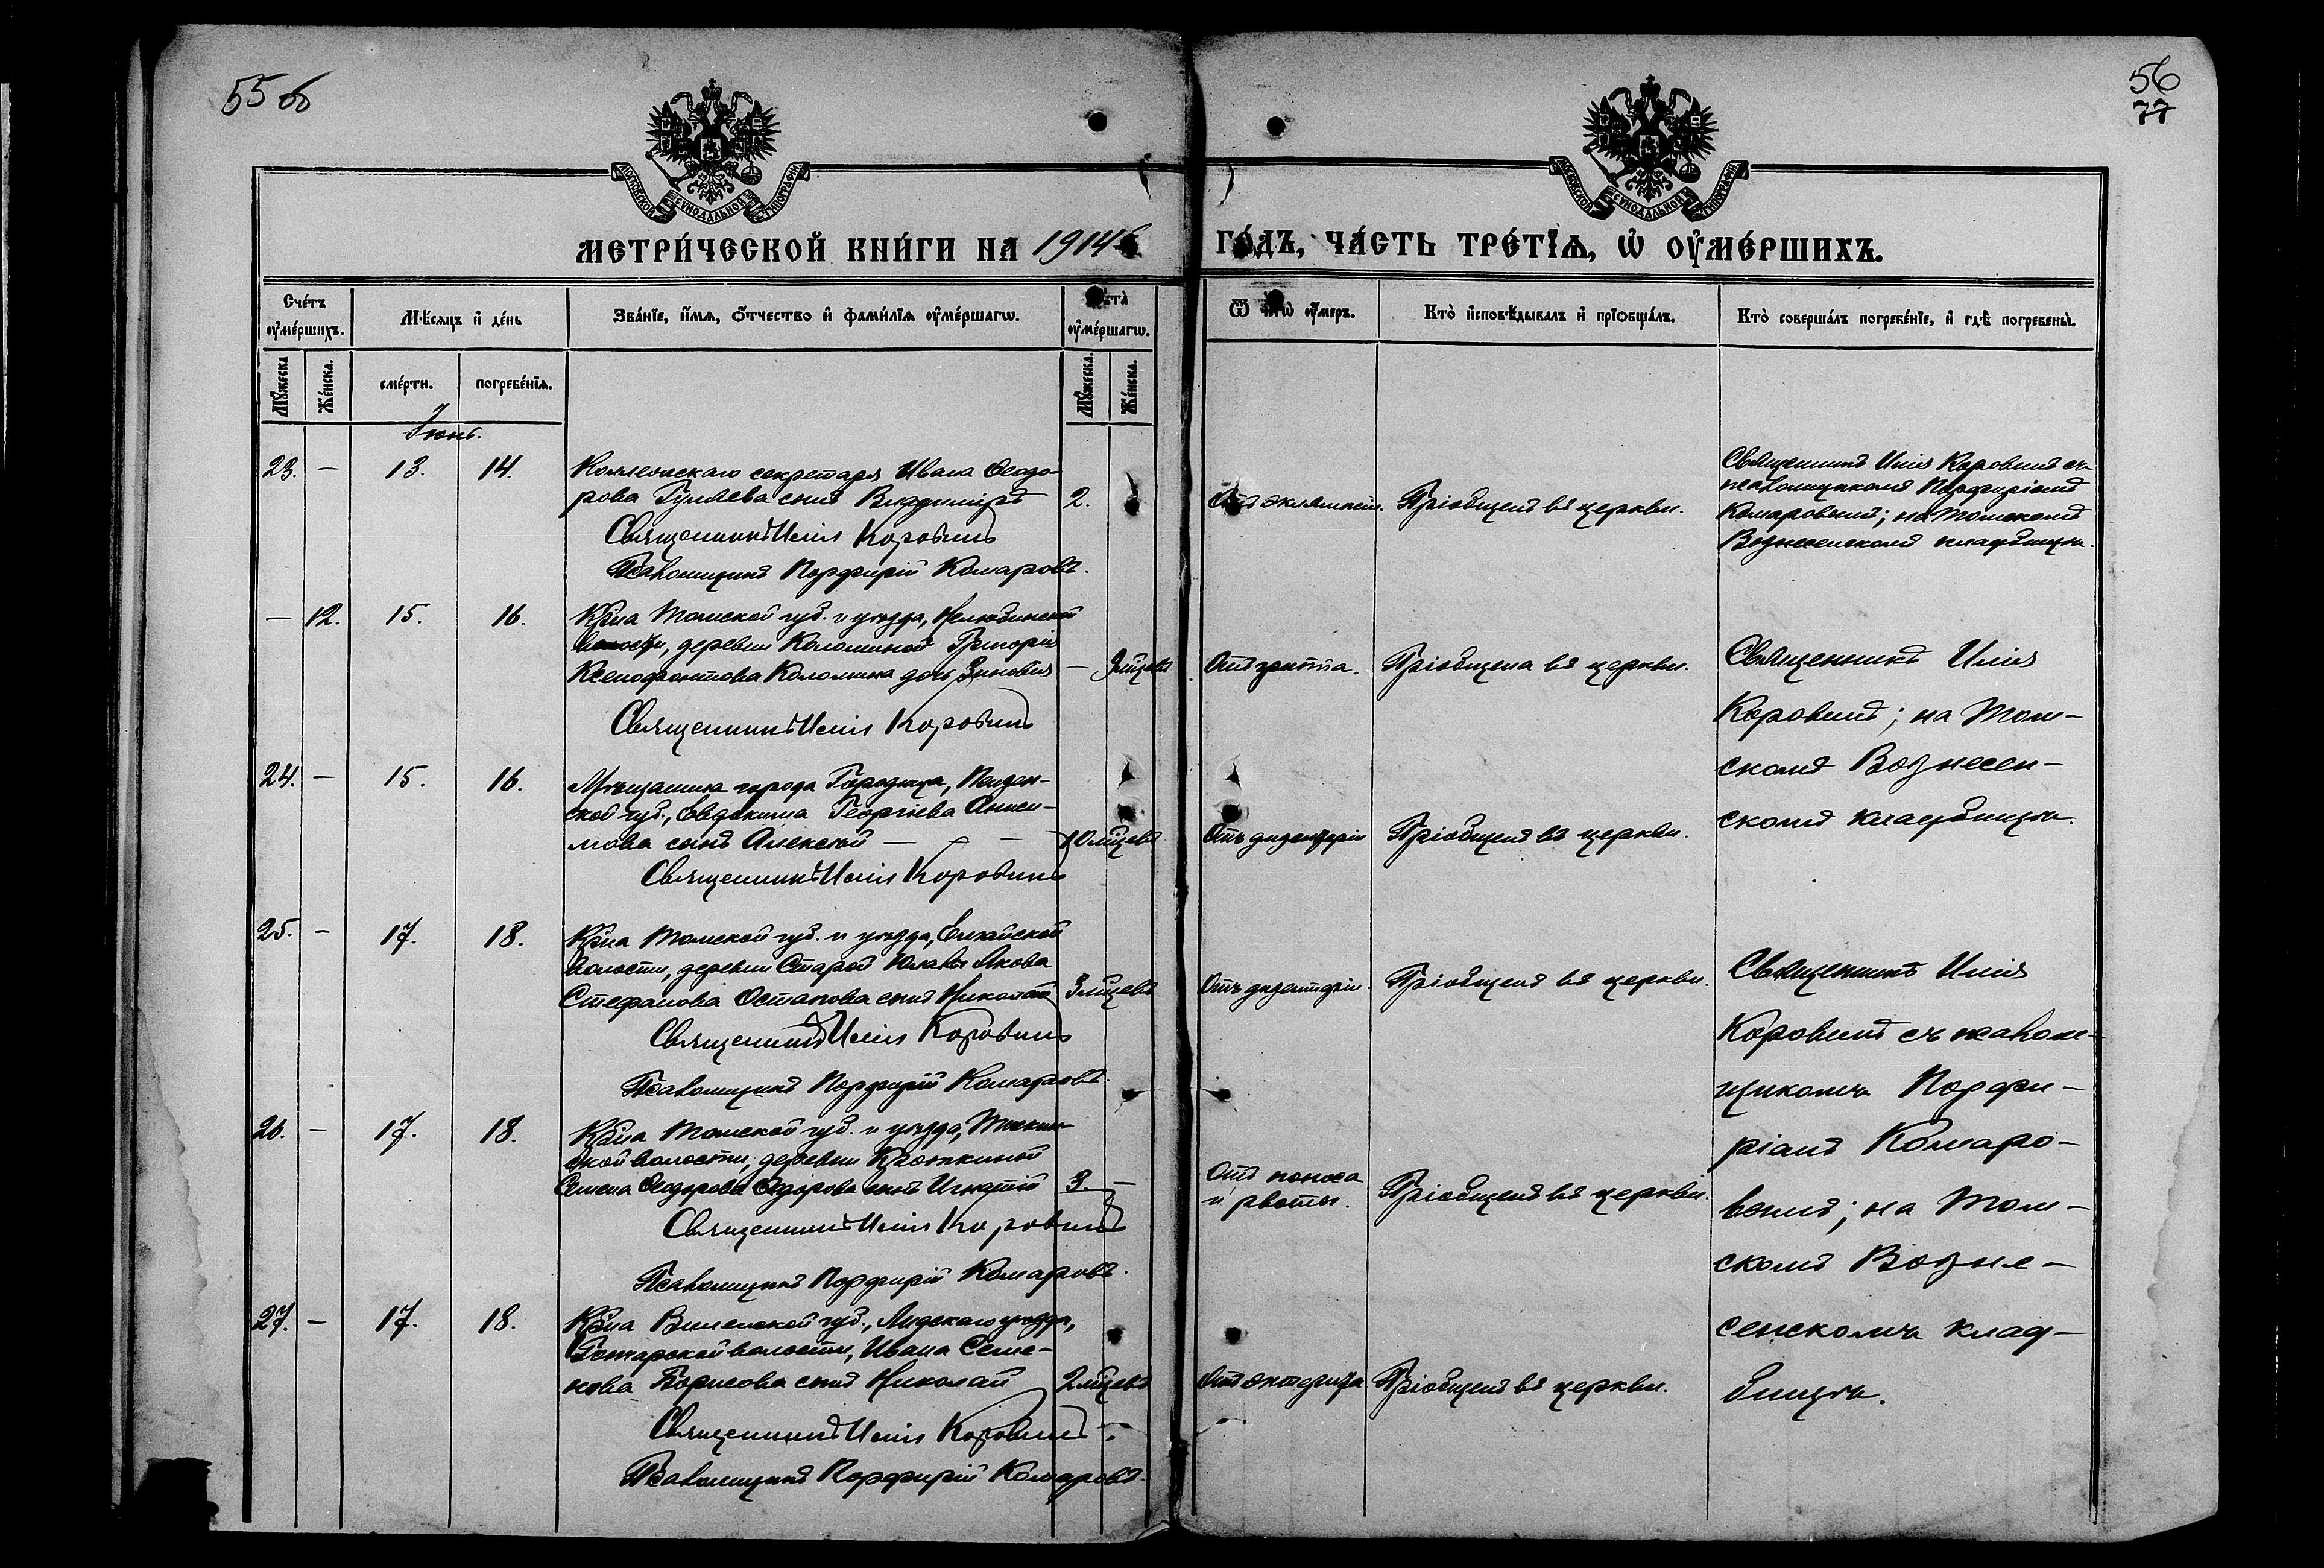 55 об
56
77
МОСКОВСКОЙ СѴНОДАЛЬНОЙ ТИПОГРАФІИ
МОСКОВСКОЙ СѴНОДАЛЬНОЙ ТИПОГРАФІИ
МЕТРИ́ЧЕСКОЙ КНИ́ГИ НА 1914
ГО́ДЪ, ЧА́СТЬ ТРЕ́ТЇѦ, Ѡ҆ ОУ҆МЕ́РШИХЪ.
Сче́тъ оу҆ме́ршихъ.
Мѣ́сяцъ и҆ де́нь
Зва́нїе, и҆́мѧ, ѻ҆́тчество и҆ фами́лїѧ оу҆ме́ршагѡ.
Лѣта̀ оу҆ме́ршагѡ.
Ѿ чегѡ̀ оу҆́меръ.
Кто̀ и҆сповѣ́дывалъ и҆ прїѡбща́лъ.
Кто̀ соверша́лъ погребе́нїе, и҆ гдѣ̀ погребены̀.
Мꙋ́жеска
Же́нска.
сме́рти.
погребе́нїѧ.
Мꙋ́жеска.
Же́нска.
Іюнь.
23. — 13. 14.
Коллежскаго секретаря Ивана Ѳеодо-
рова Гуляева сынъ Владиміръ 2.
Священникъ Илія Коровинъ
Псаломщикъ Порфирій Комаровъ.
Отъ эклямпсіи. Пріобщенъ въ церкви.
Священникъ Илія Коровинъ съ
псаломщикомъ Порфиріемъ
Комаровымъ; на Томскомъ
Вознесенскомъ кладбищѣ.
— 12. 15. 16.
Кр̃на Томской губ. и уѣзда, Нелюбинской
волости, деревни Коломиной Григорія
Ксенофонтова Коломина дочь Зиновія —
Священникъ Илія Коровинъ
Пріобщена въ церкви.
Священникъ Илія
Коровинъ; на Том-
скомъ Вознесен-
скомъ кладбищѣ.
24. — 15. 16.
Мѣщанина города Городища, Пензен-
ской губ., Евдокима Георгіева Аниси-
мова сынъ Алексѣй — 10 мѣсцевъ
Священникъ Илія Коровинъ
Отъ дизентеріи Пріобщенъ въ церкви.
25. — 17. 18.
Кр̃на Томской губ. и уѣзда, Елгайской
волости, деревни Старой Ювалы Якова
Стефанова Остапова сынъ Николай 3 мѣсцевъ
Священникъ Илія Коровинъ
Псаломщикъ Порфирій Комаровъ.
Отъ дизентеріи. Пріобщенъ въ церкви.
Священникъ Илія
Коровинъ съ псалом-
щикомъ Порфи-
ріемъ Комаро-
вымъ; на Том-
скомъ Возне-
сенскомъ клад-
бищѣ.
26. — 17. 18.
Кр̃на Томской губ. и уѣзда,
ской волости, деревни Кроткиной
Семена Ѳеодорова Ѳедорова сынъ Игнатій 3. —
Священникъ Илія Коровинъ
Псаломщикъ Порфирій Комаровъ.
Отъ поноса
и рвоты.
Пріобщенъ въ церкви.
27. — 17. 18.
Кр̃на Виленской губ., Лидскаго уѣзда,
Гончарской волости, Ивана Семе-
нова Борисова сынъ Николай 2 мѣсцевъ
Священникъ Илія Коровинъ
Псаломщикъ Порфирій Комаровъ.
Отъ энтерита Пріобщенъ въ церкви.